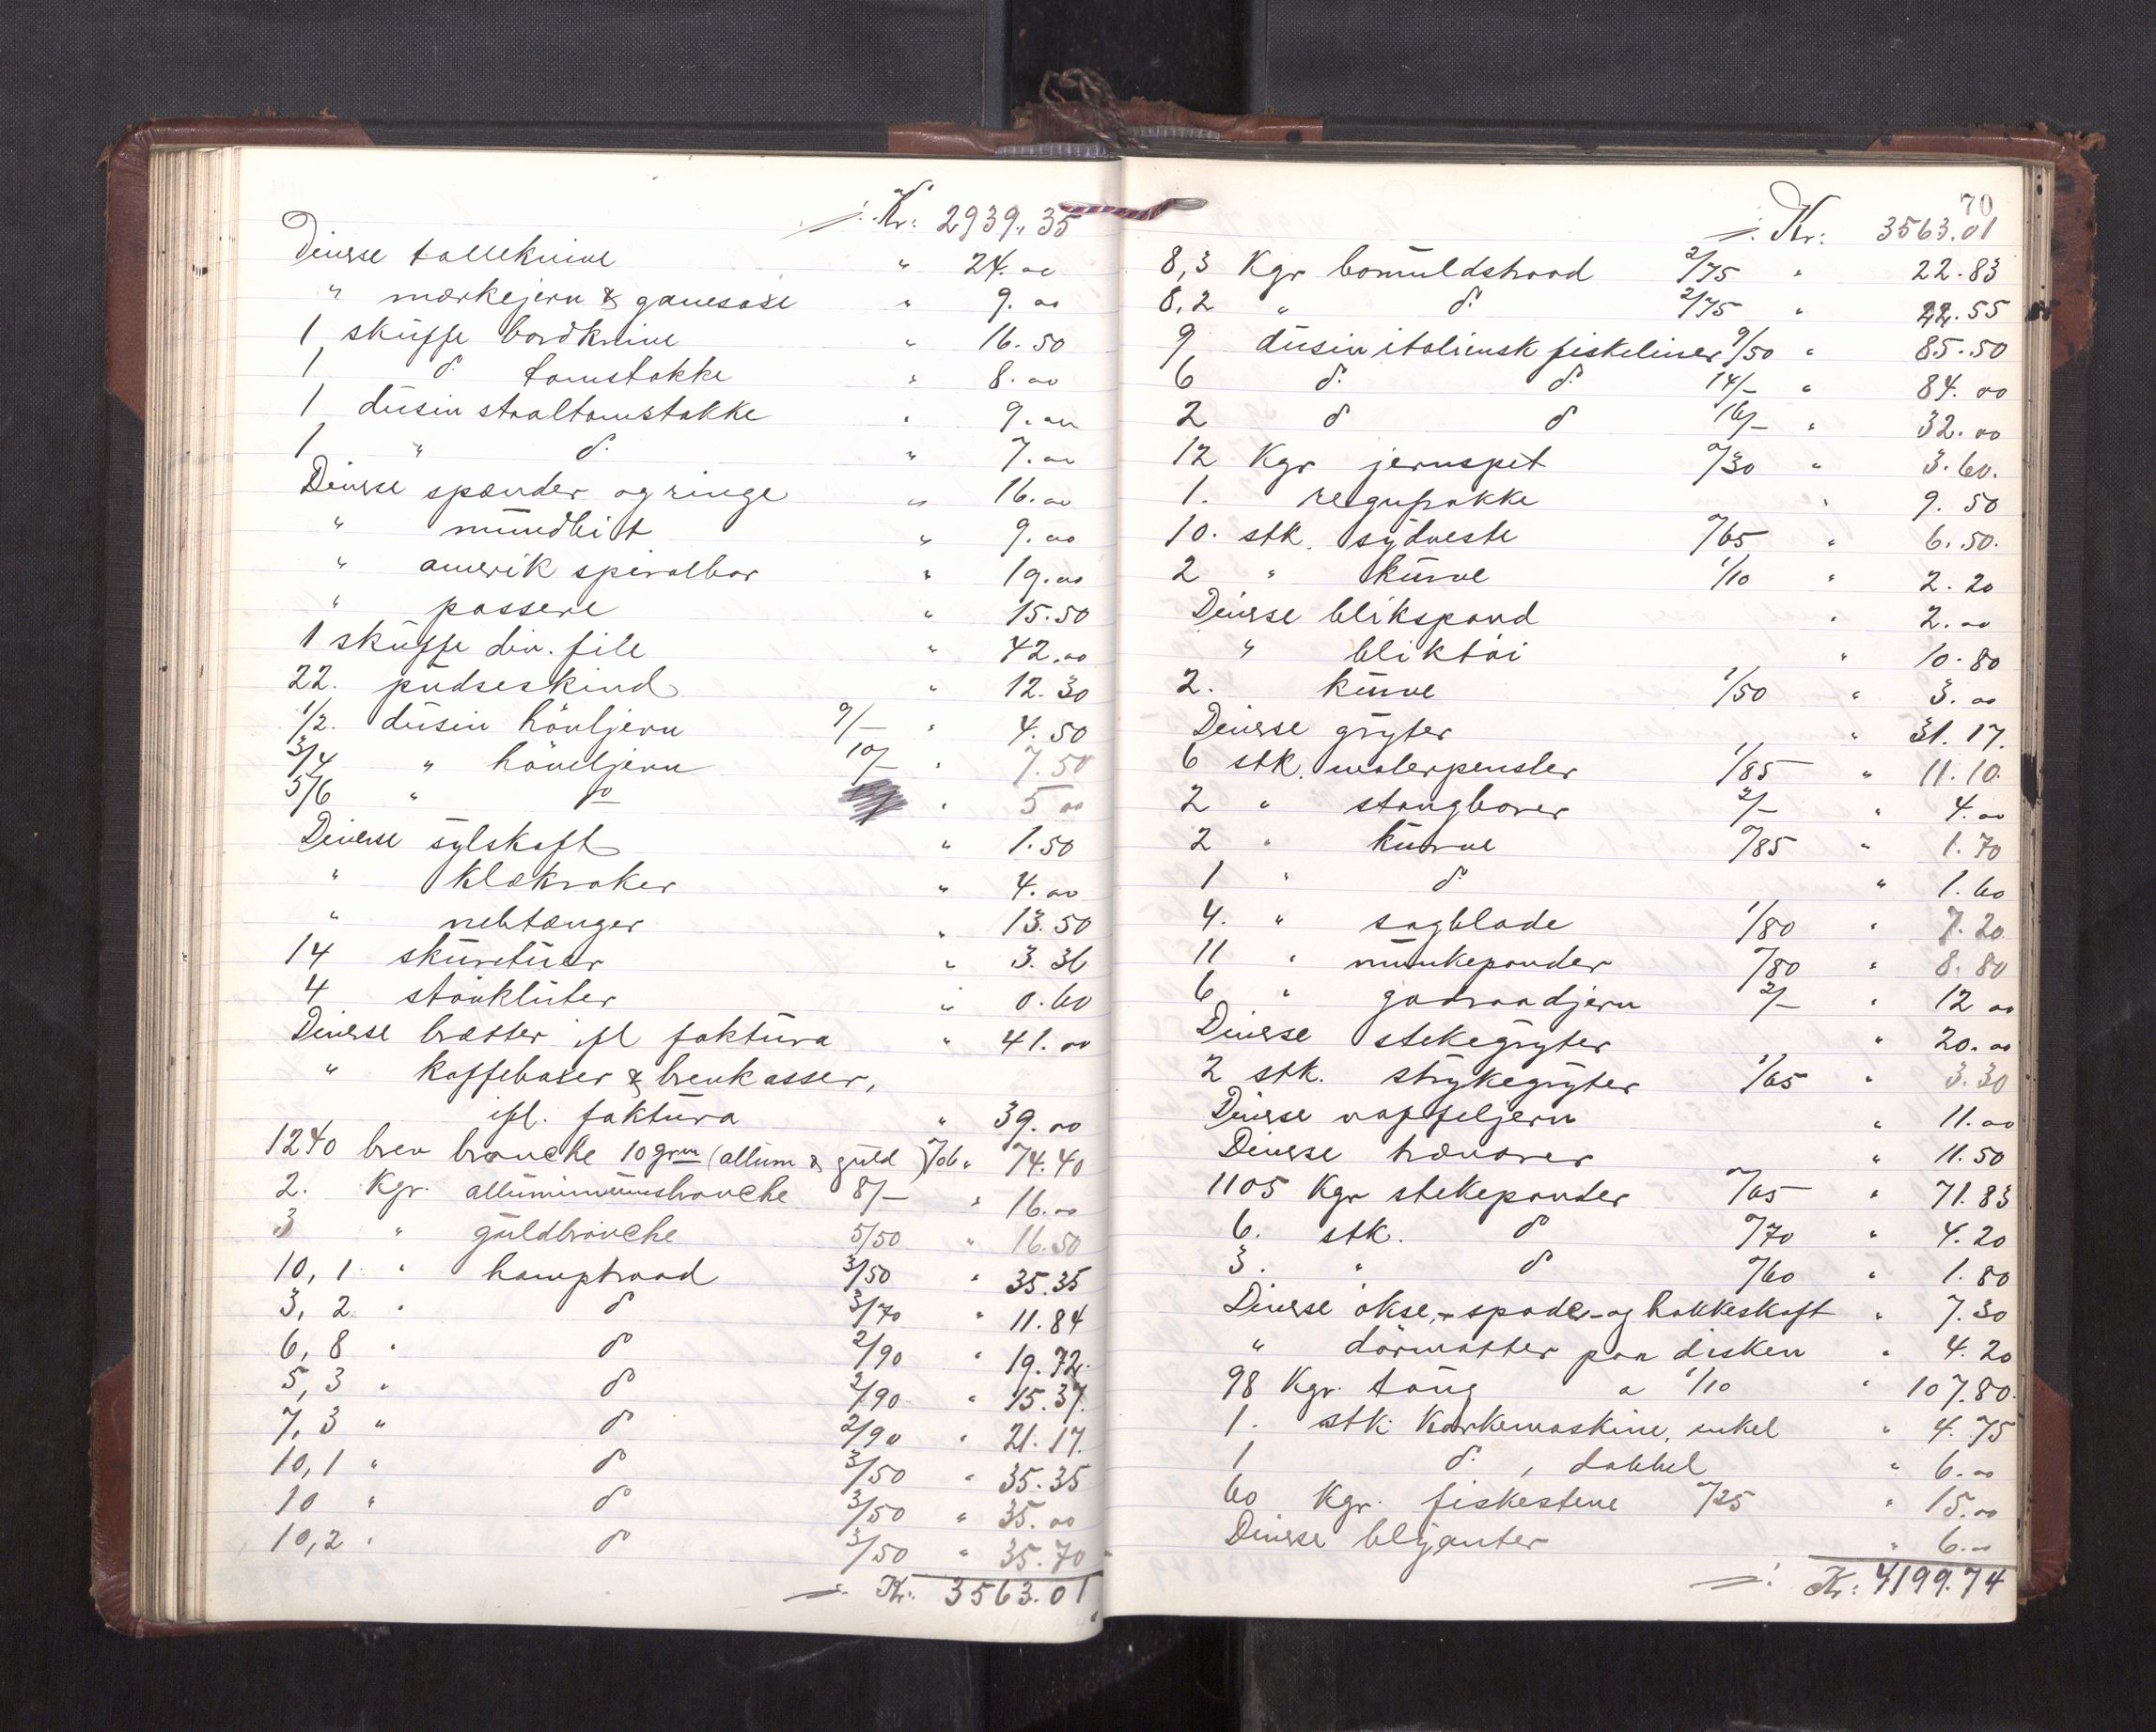 ⁒ Kr: 2939.35
Diverse tolleknive " 24.00
" mærkejern & ganesaxe " 9.00
1 skuffe bordknive " 16.50
1 do tomstokke " 8.00
1 dusin staaltomstokke " 9.00
1 " do. " 7.00
Diverse spænder og ringe " 16.00
" mundbit " 9.00
" amerik spiralbor " 19.00
" passere " 15.50
1 skuffe div. file " 42.00
22. pudseskind " 12.30
1/2. dusin hövljern 9/– " 4.50
3/4 " hövljern 10/– " 7.50
5/6 " do " 5 00
Diverse sylskaft " 1.50
" klækroker " 4.00
" nebtænger " 13.50
14 skuretuer " 3.36
4 stövkluter " 0.60
Diverse brætter ifl faktura " 41.00
" kaffebøser & brevkasser,
ifl. faktura " 39.00
1240 brev bronche 10 grm (allum & guld) "/06 " 74.40
2. Kgr. alluminiumsbronche 8/– " 16.00
3 " guldbronche 5/50 " 16.50
10,1 " hamptraad 3/50 " 35.35
3,2 " do 3/70 " 11.84
6,8 " do 2/90 " 19.72
5,3 " do 2/90 " 15.37
7,3 " do 2/90 " 21.17
10,1 " do 3/50 " 35.35
10 " do 3/50 " 35.00
10,2 " do 3/50 " 35.70
⁒ Kr: 3563.01
70
⁒ Kr: 3563.01
8,3 Kgr bomuldstraad 2/75 " 22.83
8,2 " do 2/75 " 22.55
9 dusin italiensk fiskeliner 9/50 " 85.50
6 do do 14/– " 84.00
2 do do 16/– " 32.00
12 Kgr jernspet "/30 " 3.60.
1. regnfrakke " 9.50
10. stk. sydveste "/65 " 6.50.
2 " kurve 1/10 " 2.20
Diverse blikspand " 2.00
" bliktöi " 10.80
2. kurve 1/50 " 3.00
Diverse gryter " 31.17.
6 stk. malerpensler 1/85 " 11.10.
2 " stangborer 2/– " 4.00
2 " kurve "/85 " 1.70
1 " do " 1.60
4. " sagblade 1/80 " 7.20
11 " munkepander "/80 " 8.80
6 " goraadjern 2/– " 12 00
Diverse stekegryter " 20.00
2 stk. strykegryter 1/65 " 3.30
Diverse vaffeljern " 11.00
Diverse " 11.50
1105 Kgr stekepander "/65 " 71.83
6. stk. do "/70 " 4.20
3. " do "/60 " 1.80
Diverse økse-, spade- og hakkeskaft " 7.30
" dörmatter paa disken " 4.20
98 Kgr. taug a 1/10 " 107.80.
1. stk. Korkemaskine, enkel " 4.75
1 do. , dobbel " 6.00
60 Kgr. fiskestene "/25 " 15.00
Diverse blyanter " 6.00
⁒ Kr: 4199.74